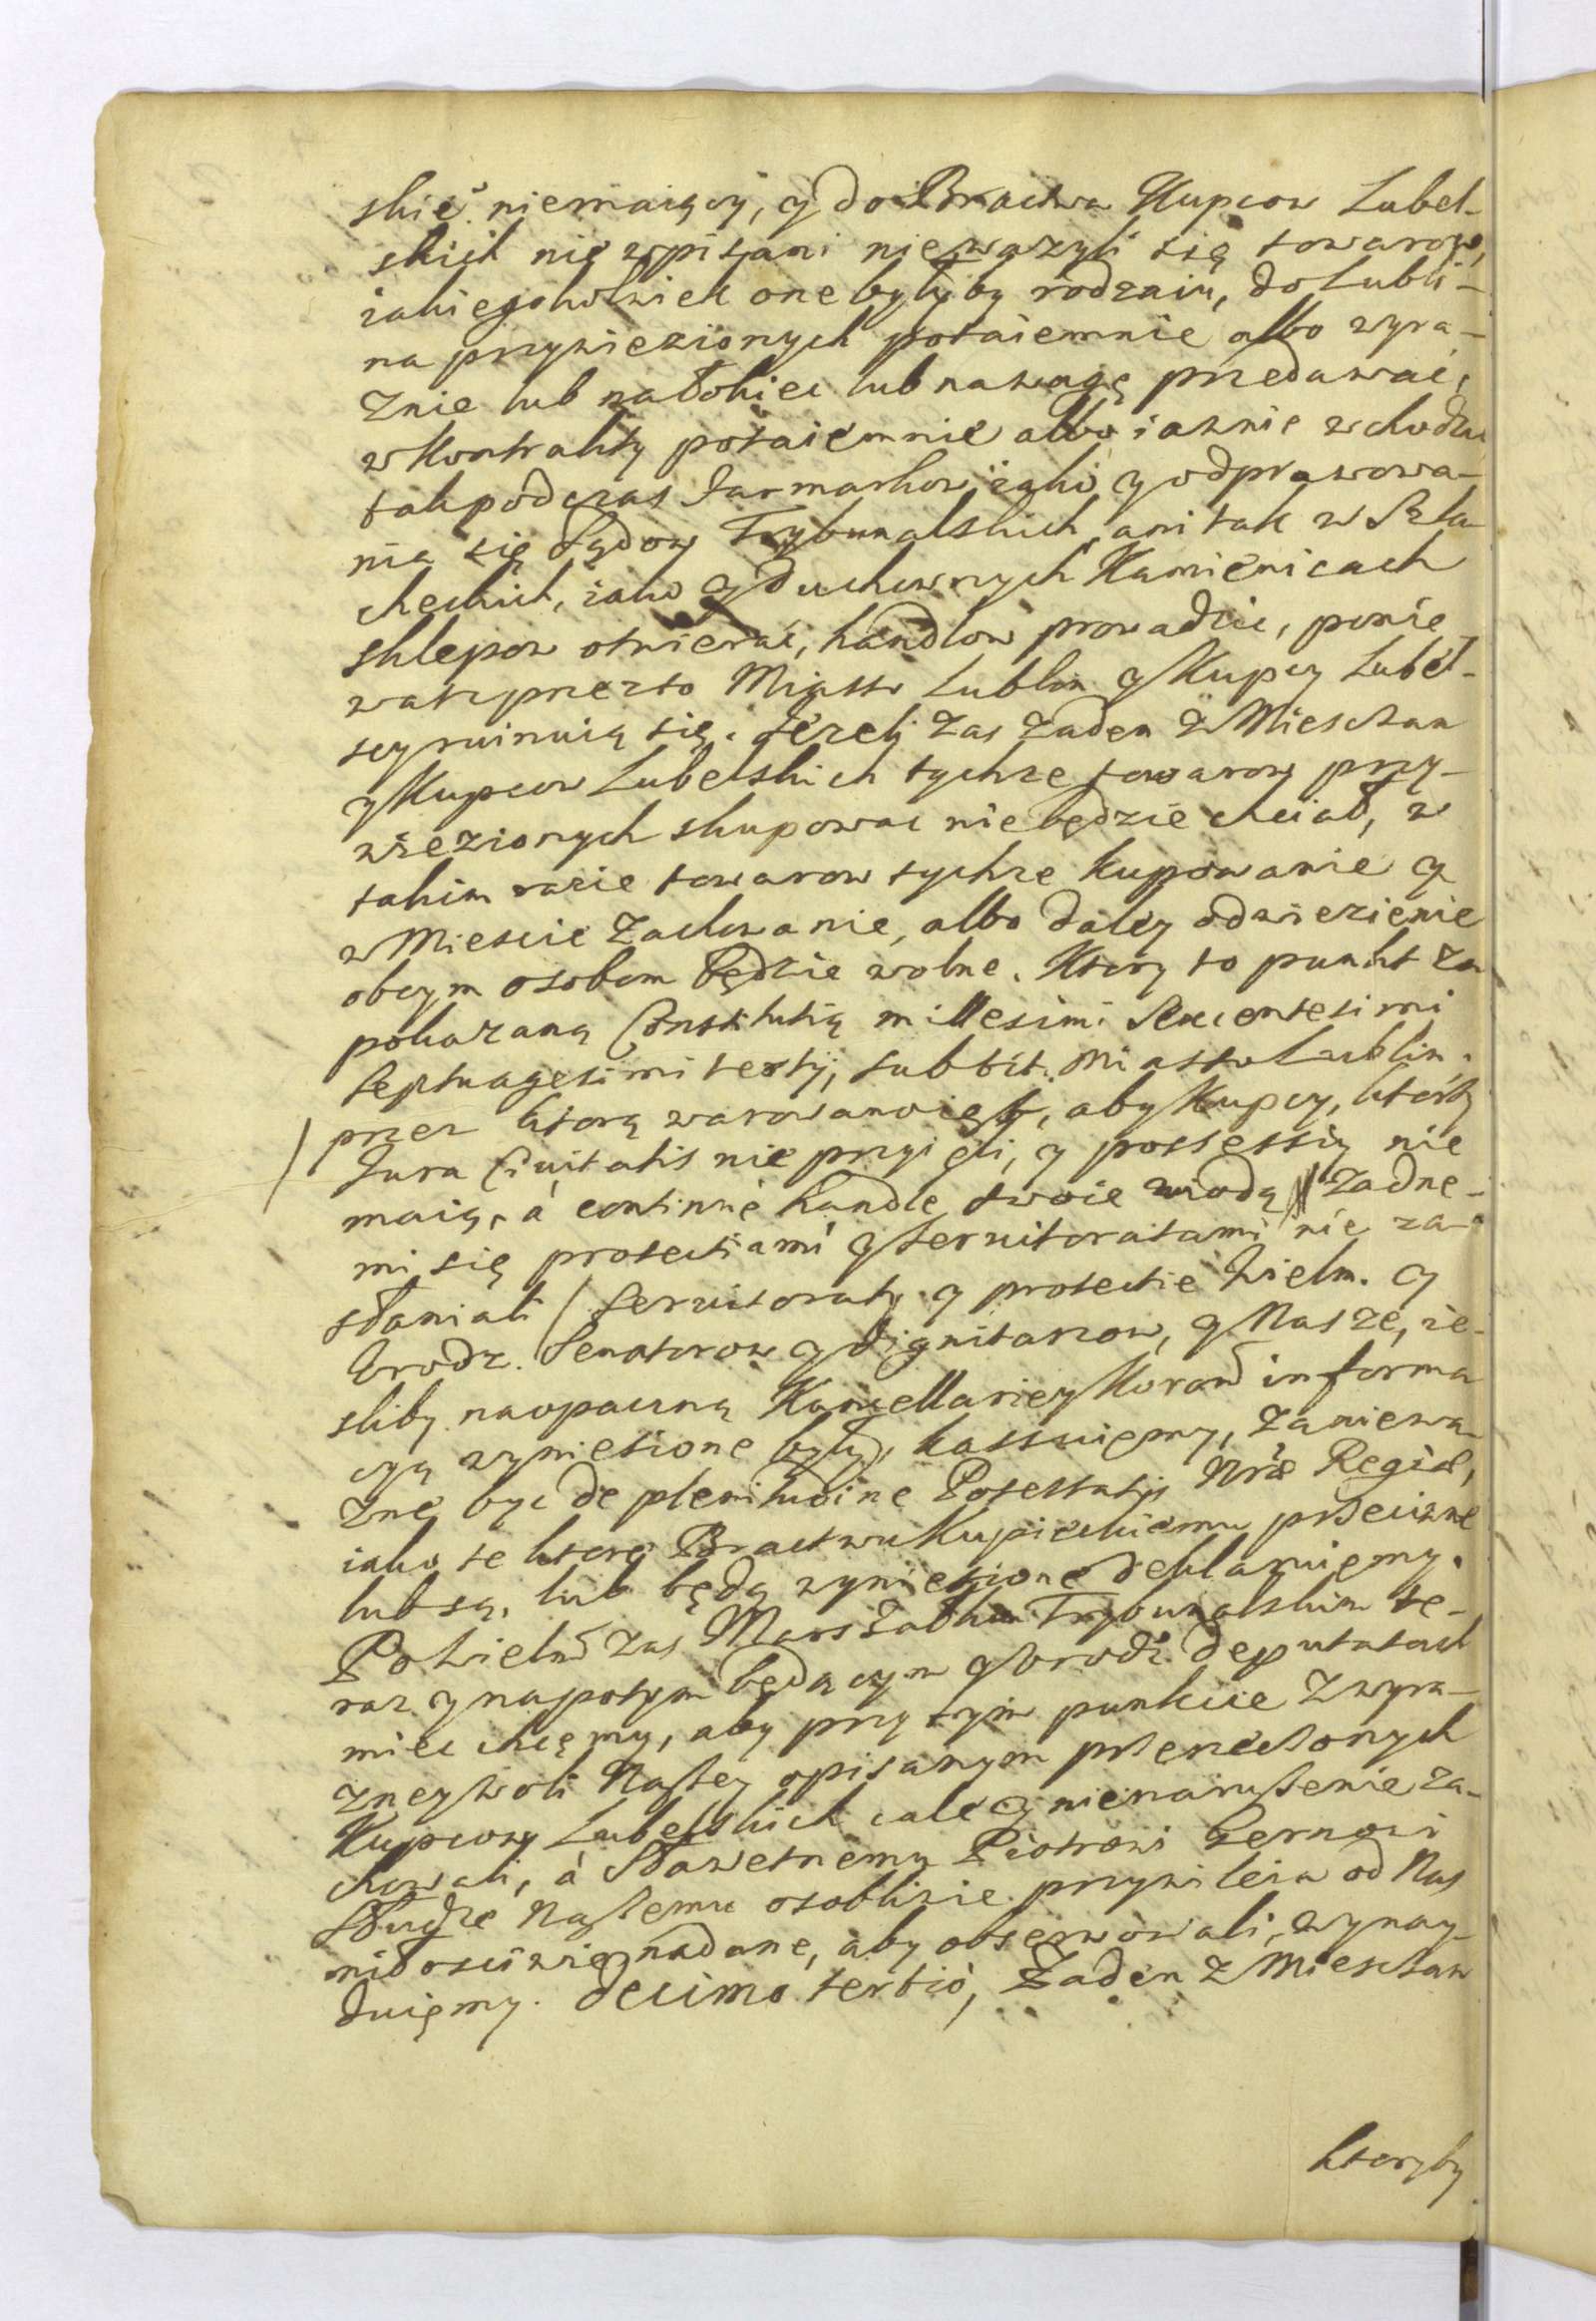 skie niemaiący, y do Bractwa Kupcow Lubel-
skich nie wpisani nieważyli się towarow,
iakiegokolwiek one byłyby rodzaiu, do Lubli-
na przywiezionych potaiemnie albo wyra-
znie lub na Łokiec lub na wagę przedawać,
w Kontrakty potaiemnie albo iawnie wchodzic
tak podczas Iarmarkow iako y odprawowa-
nia się Sądow Trybunalskich, ani tak w Szla-
checkich, iako y Duchownych Kamienicach
sklepow otwierać, handlow prowadzic, ponie-
waz przez to Miasto Lublin y Kupcy Lubel-
scy ruinuią się. Jezeli zas zaden z Miesczan
y Kupcow Lubelskich tychze towarow przy-
wiezionych skupowac nie będzie chciał, w
takim razie towarow tychze kupowanie y
w Miescie zachowanie, albo daley odwiezienie
obcym osobom będzie wolne. Ktory to punkt za
pokazaną Constitutią millesimi Sexcentesimi
septuagesimi tertij, sub tit. Miasto Lublin,
przez ktorą warowano iest, aby Kupcy, ktorzy
Jura Civitatis nie przyięli, y possessiy nie
maią, à continuè handle swoie wiodą zadne-
mi się protectiami y servitoratami nie za-
słaniali / servitoraty y protectie Wielm. y
Urodz. Senatorow y Dignitarzow, y Nasze, ie-
sliby na opaczną Kancellariey Koron informa
cyą wyniesione były, kassuiemy, za niewa-
zne byc de plenitudine Potestatis Nræ Regiæ,
iako te ktore Bractwu Kupieckiemu przeciwne
lub są, lub będą wyniesione deklaruiemy.
Po Wielm zas Marszałku Trybunalskim te-
raz y napotym będącym y Urodz. Deputatach
miec chcemy, aby przy tym punkcie z wyra-
zney Woli Naszey opisanym przerzeczonych
Kupcow Lubelskich cale y nienaruszenie za-
chowali, à Sławetnemu Piotrowi Gernowi
Słudze Naszemu osobliwie przywileia od Nas
miłosciwie nadane, aby obserwowali, wynay-
duiemy. Decimo tertiò, Zaden z Miesczan
ktoryby